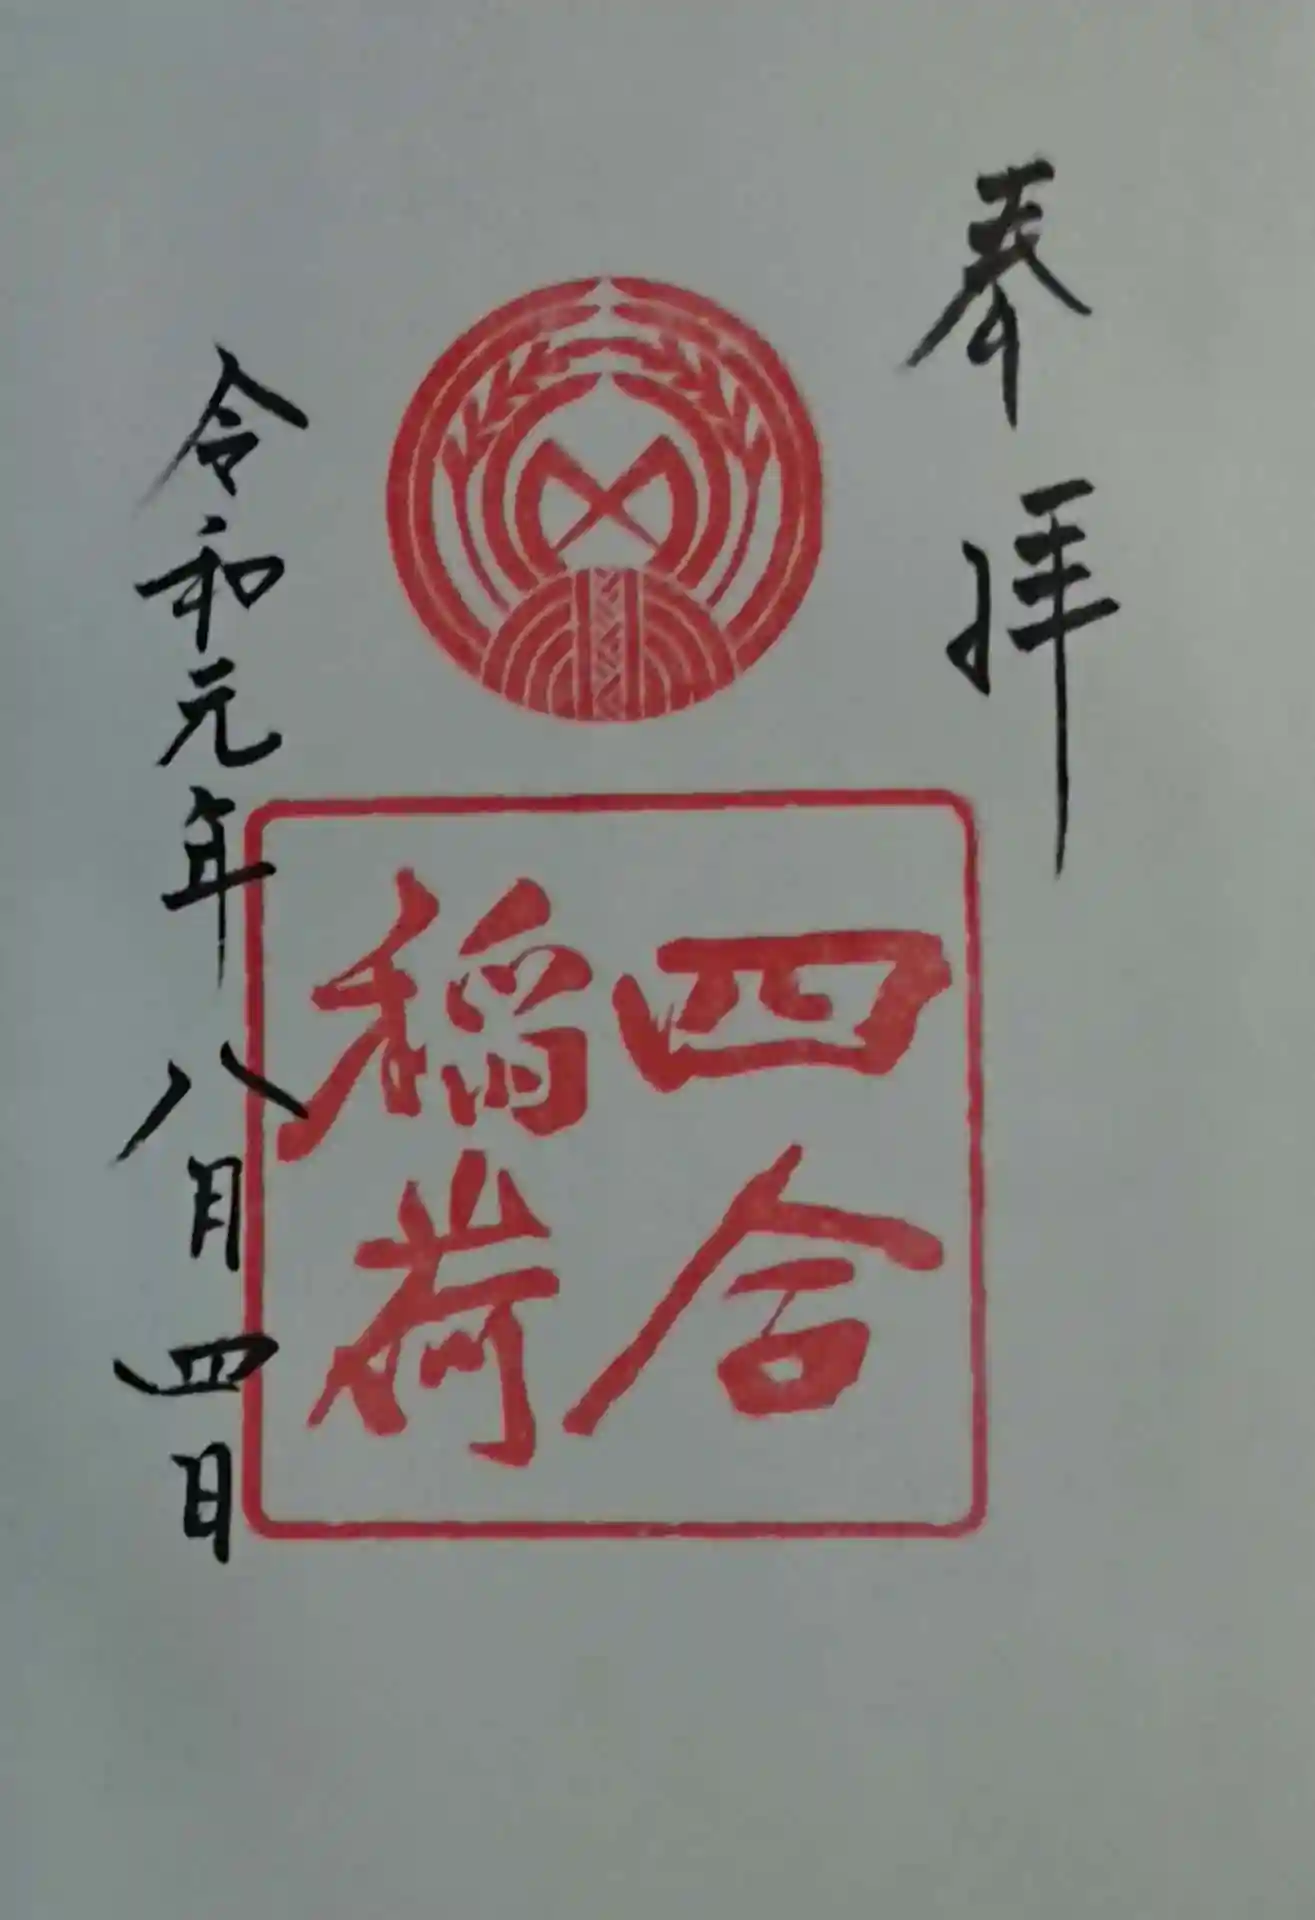 奉拝
四合
稲荷
令和元年八月四日